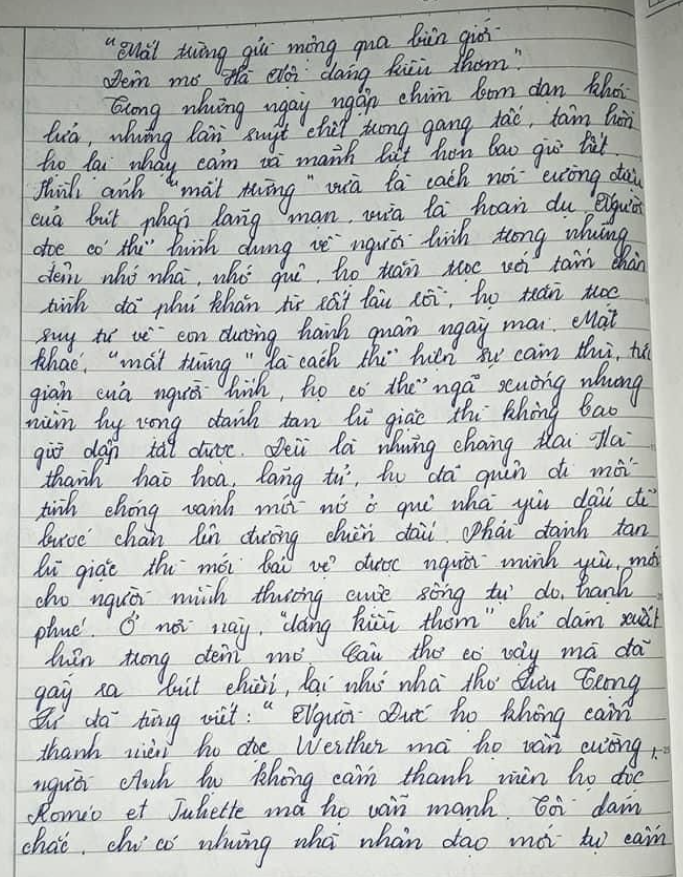 "Mắt trừng gửi mộng qua biên giới
Đêm mơ Hà Nội dáng kiều thơm".
Trong những ngày ngập chìm bom đạn khói
lửa, những lần suýt chết trong gang tấc, tâm hồn
họ lại nhạy cảm và mãnh liệt hơn bao giờ hết.
Hình ảnh "mắt trừng" vừa là cách nói cường điệu
của bút pháp lãng mạn, vừa là hoán dụ. Người
đọc có thể hình dung về người lính trong những
đêm nhớ nhà, nhớ quê, họ trằn trọc với tấm chân
tình đã phủ khăn từ rất lâu rồi, họ trằn trọc
suy tư về con đường hành quân ngày mai. Mặt
khác, "mắt trừng" là cách thể hiện sự căm thù, tức
giận của người lính, họ có thể ngã xuống nhưng
niềm hy vọng đánh tan lũ giặc thì không bao
giờ dập tắt được. Đều là những chàng trai Hà
thành hào hoa, lãng tử, họ đã quên đi mối
tình chóng vánh mới nở ở quê nhà yêu dấu để
bước chân lên đường chiến đấu. Phải đánh tan
lũ giặc thì mới bảo vệ được người mình yêu, mới
cho người mình thương cuộc sống tự do, hạnh
phúc. Ở nơi này, "dáng kiều thơm" chỉ dám xuất
hiện trong đêm mơ. Câu thơ có vậy mà đã
gây ra bút chiến, lại nhớ nhà thơ Lưu Trọng
Lư đã từng viết: "Người Đức họ không cấm
thanh niên họ đọc Werther mà họ vẫn cường,
người Anh họ không cấm thanh niên họ đọc
Roméo et Juliette mà họ vẫn mạnh. Tôi dám
chắc, chỉ có những nhà nhân đạo mới tự cấm